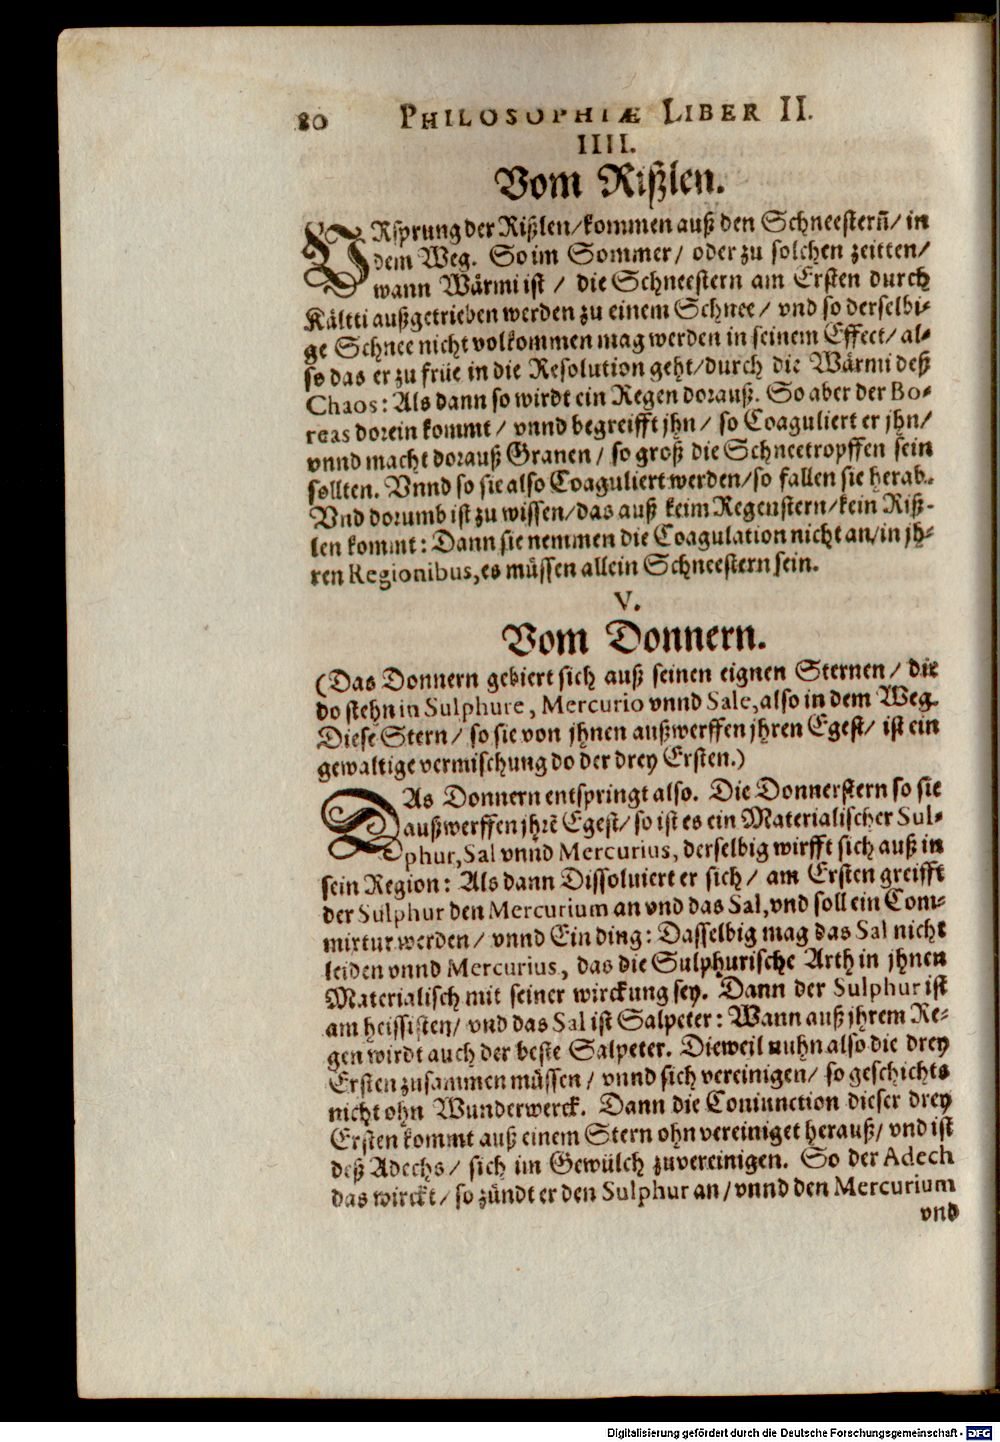 80 PHILOSOPHIÆ LIBER II.
IIII.
Vom Rißlen.
URsprung der Rißlen/kommen auß den Schneestern̄/ in
dem Weg. So im Sommer/ oder zu solchen zeitten/
wann Wärmi ist / die Schneestern am Ersten durch
Kältti außgetrieben werden zu einem Schnee/ vnd so derselbi-
ge Schnee nicht volkommen mag werden in seinem Effect/ al-
so das er zu früe in die Resolution geht/durch die Wärmi deß
Chaos: Als dann so wirdt ein Regen dorauß. So aber der Bo-
reas dorein kommt / vnnd begreifft jhn / so Coaguliert er jhn/
vnnd macht dorauß Granen / so groß die Schneetropffen sein
sollten. Vnnd so sie also Coaguliert werden/so fallen sie herab.
Vnd dorumb ist zu wissen/das auß keim Regenstern/kein Riß-
len kommt: Dann sie nemmen die Coagulation nicht an/in jh-
ren Regionibus,es müssen allein Schneestern sein.
V.
Vom Donnern.
(Das Donnern gebiert sich auß seinen eignen Sternen/ die
do stehn in Sulphure, Mercurio vnnd Sale,also in dem Weg.
Diese Stern/ so sie von jhnen außwerffen jhren Egest/ ist ein
gewaltige vermischung do der drey Ersten.)
DAs Donnern entspringt also. Die Donnerstern so sie
außwerffen jhrē Egest/ so ist es ein Materialischer Sul-
phur,Sal vnnd Mercurius, derselbig wirfft sich auß in
sein Region: Als dann Dissoluiert er sich/ am Ersten greifft
der Sulphur den Mercurium an vnd das Sal,vnd soll ein Com-
mixtur werden/ vnnd Ein ding: Dasselbig mag das Sal nicht
leiden vnnd Mercurius, das die Sulphurische Arth in jhnen
Materialisch mit seiner wirckung sey. Dann der Sulphur ist
am heissisten/ vnd das Sal ist Salpeter: Wann auß jhrem Re-
gen wirdt auch der beste Salpeter. Dieweil nuhn also die drey
Ersten zusammen müssen/ vnnd sich vereinigen/ so geschichts
nicht ohn Wunderwerck. Dann die Coniunction dieser drey
Ersten kommt auß einem Stern ohn vereiniget herauß/ vnd ist
deß Adechs/ sich im Gewülch zuvereinigen. So der Adech
das wirckt/ so zündt er den Sulphur an/ vnnd den Mercurium
vnd
Digitalisierung gefördert durch die Deutsche Forschungsgemeinschaft - DFG